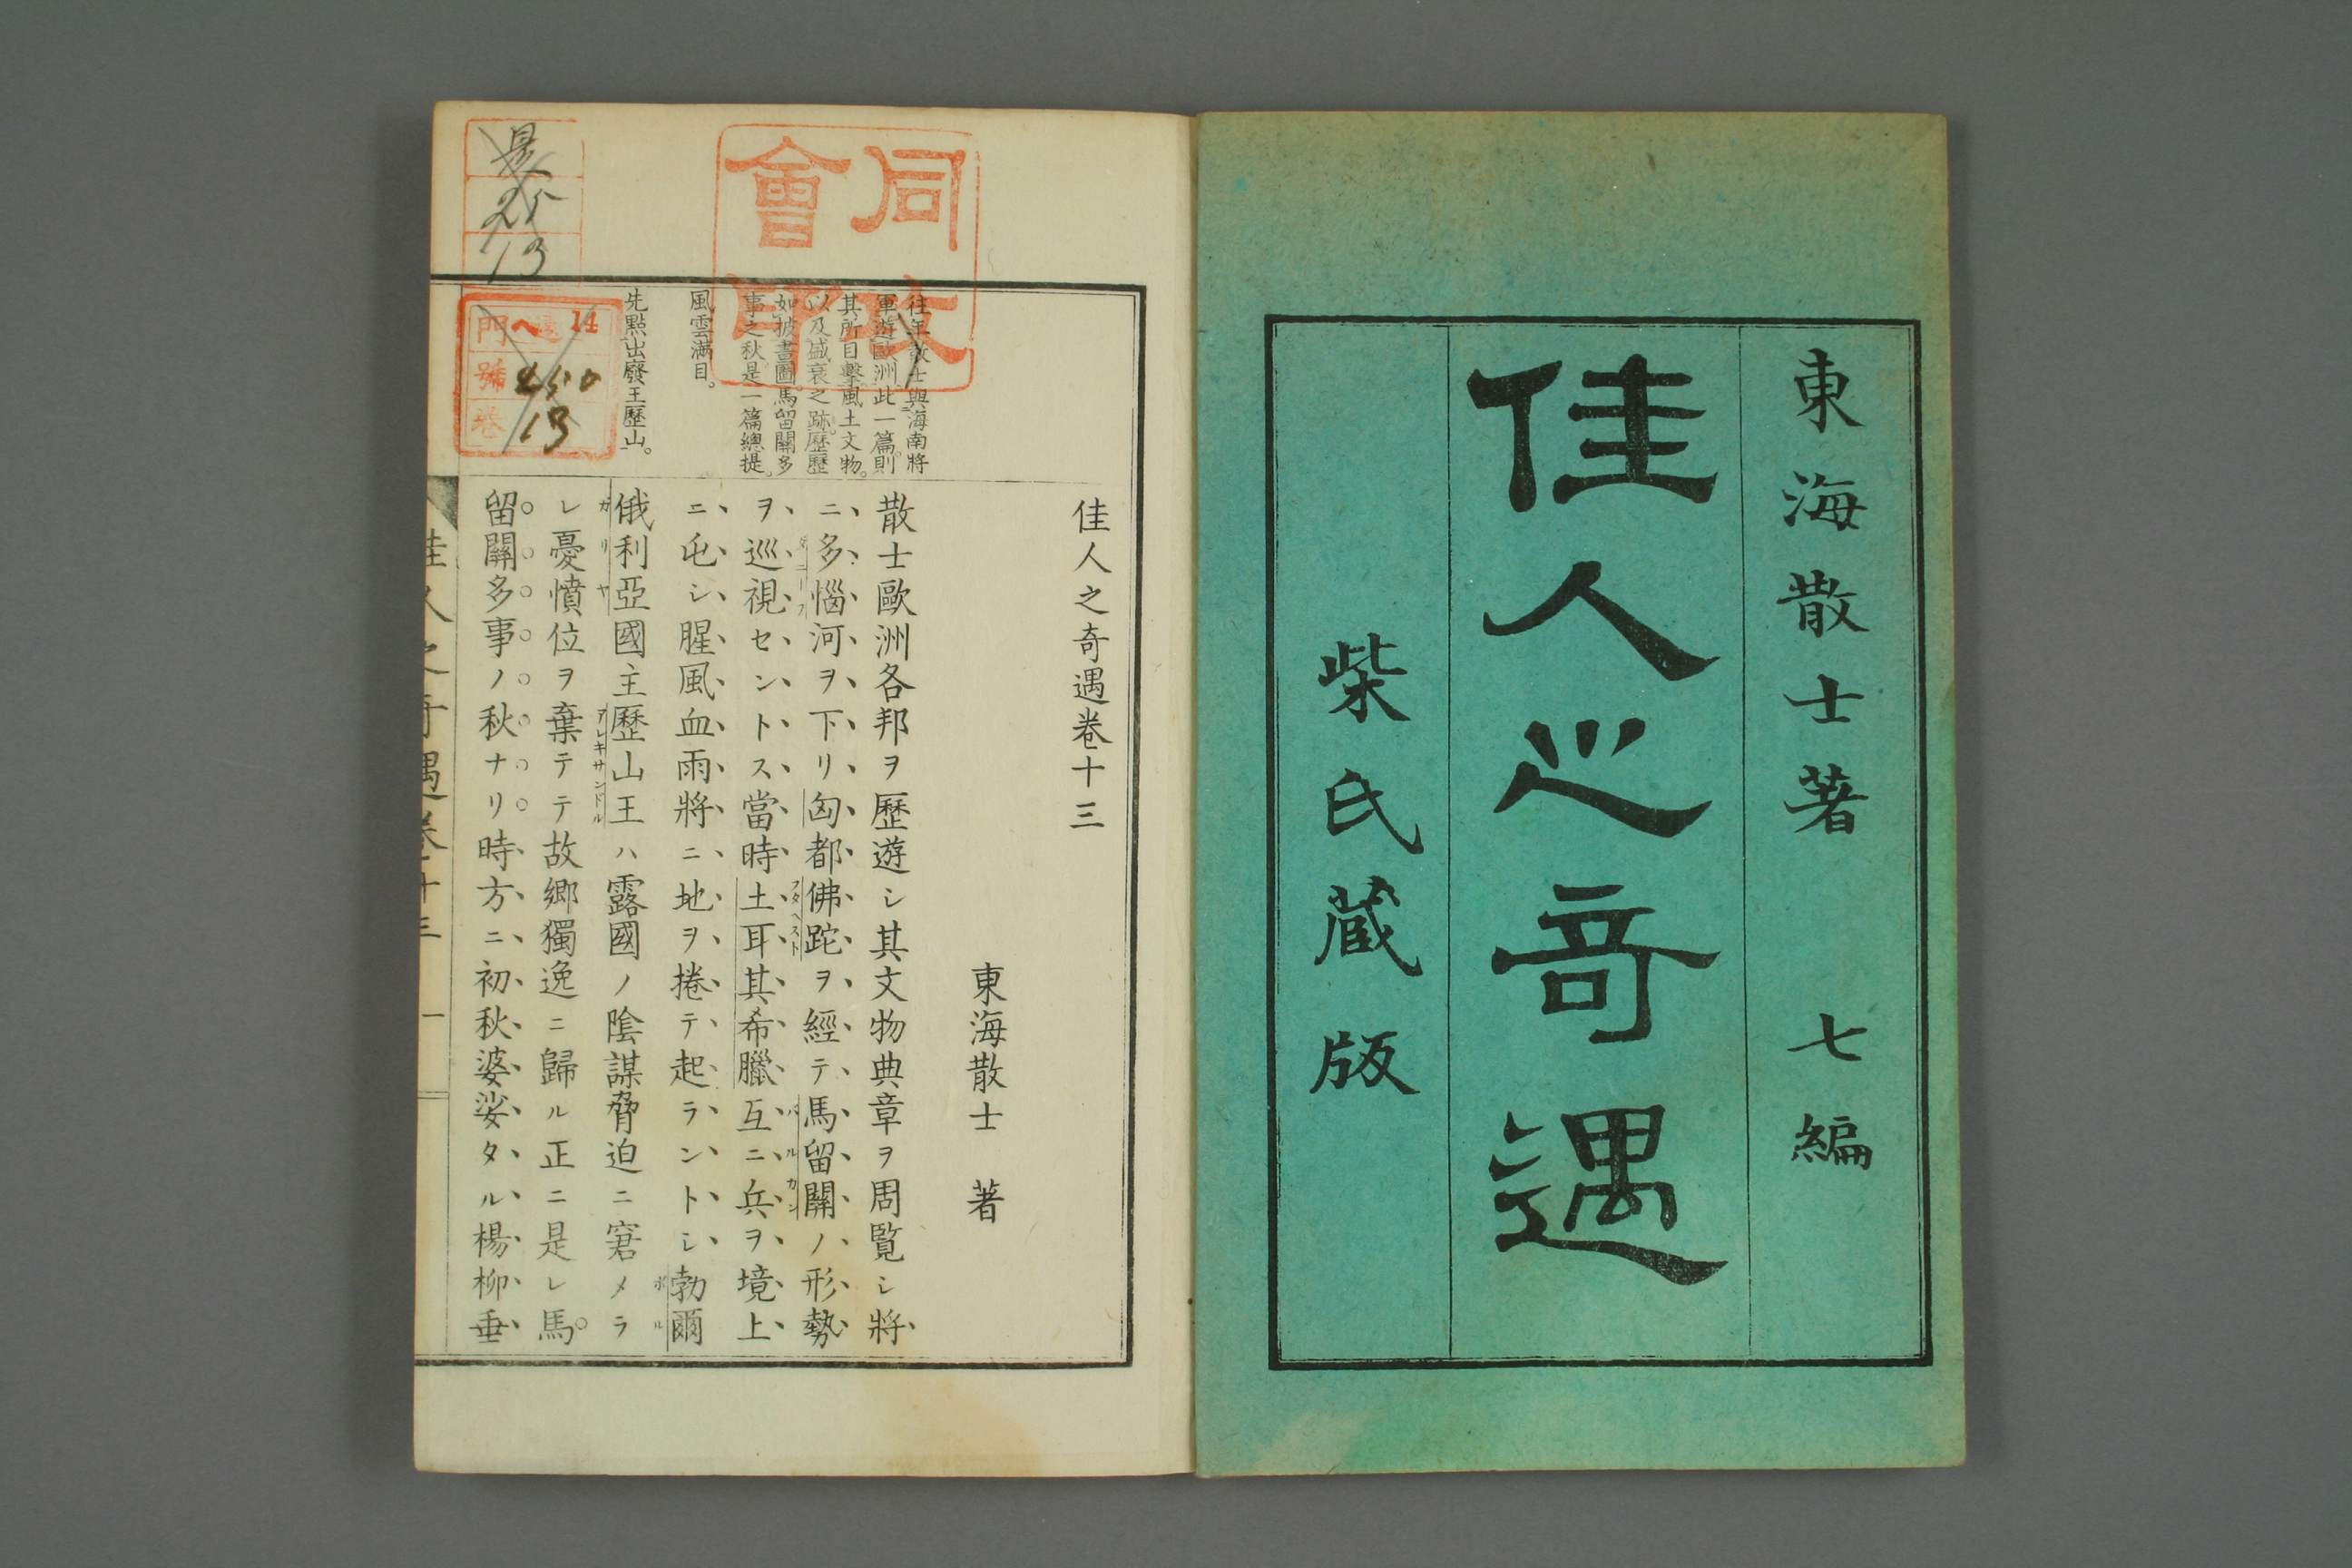 東海散士著 七編
佳人之奇遇
柴氏蔵版
佳人之奇遇巻十三
東海散士 著
散士歐洲各邦ヲ歷遊シ其文物典章ヲ周覽シ將
ニ多惱河ヲ下リ匈都佛跎ヲ經テ馬留關ノ形勢
ヲ巡視セントス當時土耳其希臘互ニ兵ヲ境上
ニ屯シ腥風血雨將ニ地ヲ捲テ起ラントシ勃爾
俄利亞國主歷山王ハ露國ノ陰謀脅迫ニ窘メラ
レ憂憤位ヲ棄テテ故鄉獨逸ニ歸ル正ニ是レ馬
留關多事ノ秋ナリ時方ニ初秋婆娑タル楊柳垂
往年散士與海南將
軍遊歐洲此一篇則
其所目擊風土文物。
以及盛衰之跡。歷歷
如披畫圖。馬留關多
事之秋。是一篇總提。
風雲滿目。
先點出廢王歷山。
同
會
印
門 號 卷
ヘ 14
450
13
25
13